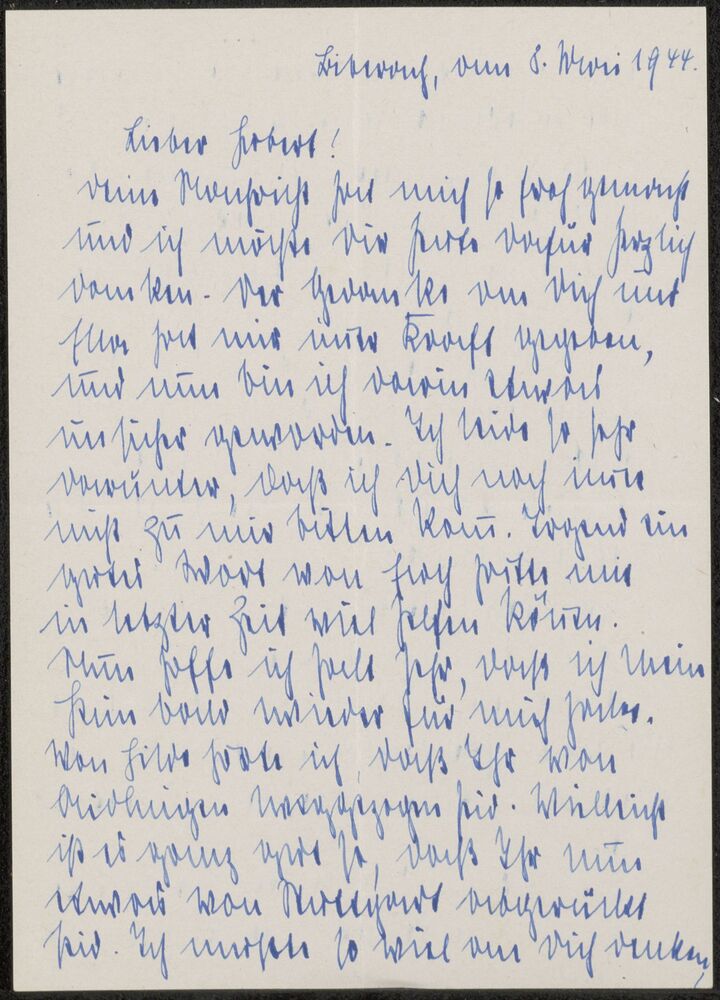 Biberach, den 8. Mai 1944.
Lieber Herbert!
Deine Nachricht hat mich so froh gemacht
und ich möchte Dir heute dafür herzlich
danken. Der Gedanke an Dich und
Ella hat mir immer Kraft gegeben,
und nun bin ich darin etwas
unsicher geworden. Ich leide so sehr
darunter, daß ich Dich noch immer
nicht zu mir bitten kann. Irgend ein
gutes Wort von Euch hätte mir
in letzter Zeit viel helfen können.
Nun hoffe ich halt sehr, daß ich mein
Heim bald wieder für mich habe.
Von Hilde hörte ich, daß Ihr von
Aidlingen weggezogen seid. Vielleicht
ist es ganz gut so, daß Ihr nun
etwas von Stuttgart abgerückt
seid. Ich mußte so viel an Dich denken,